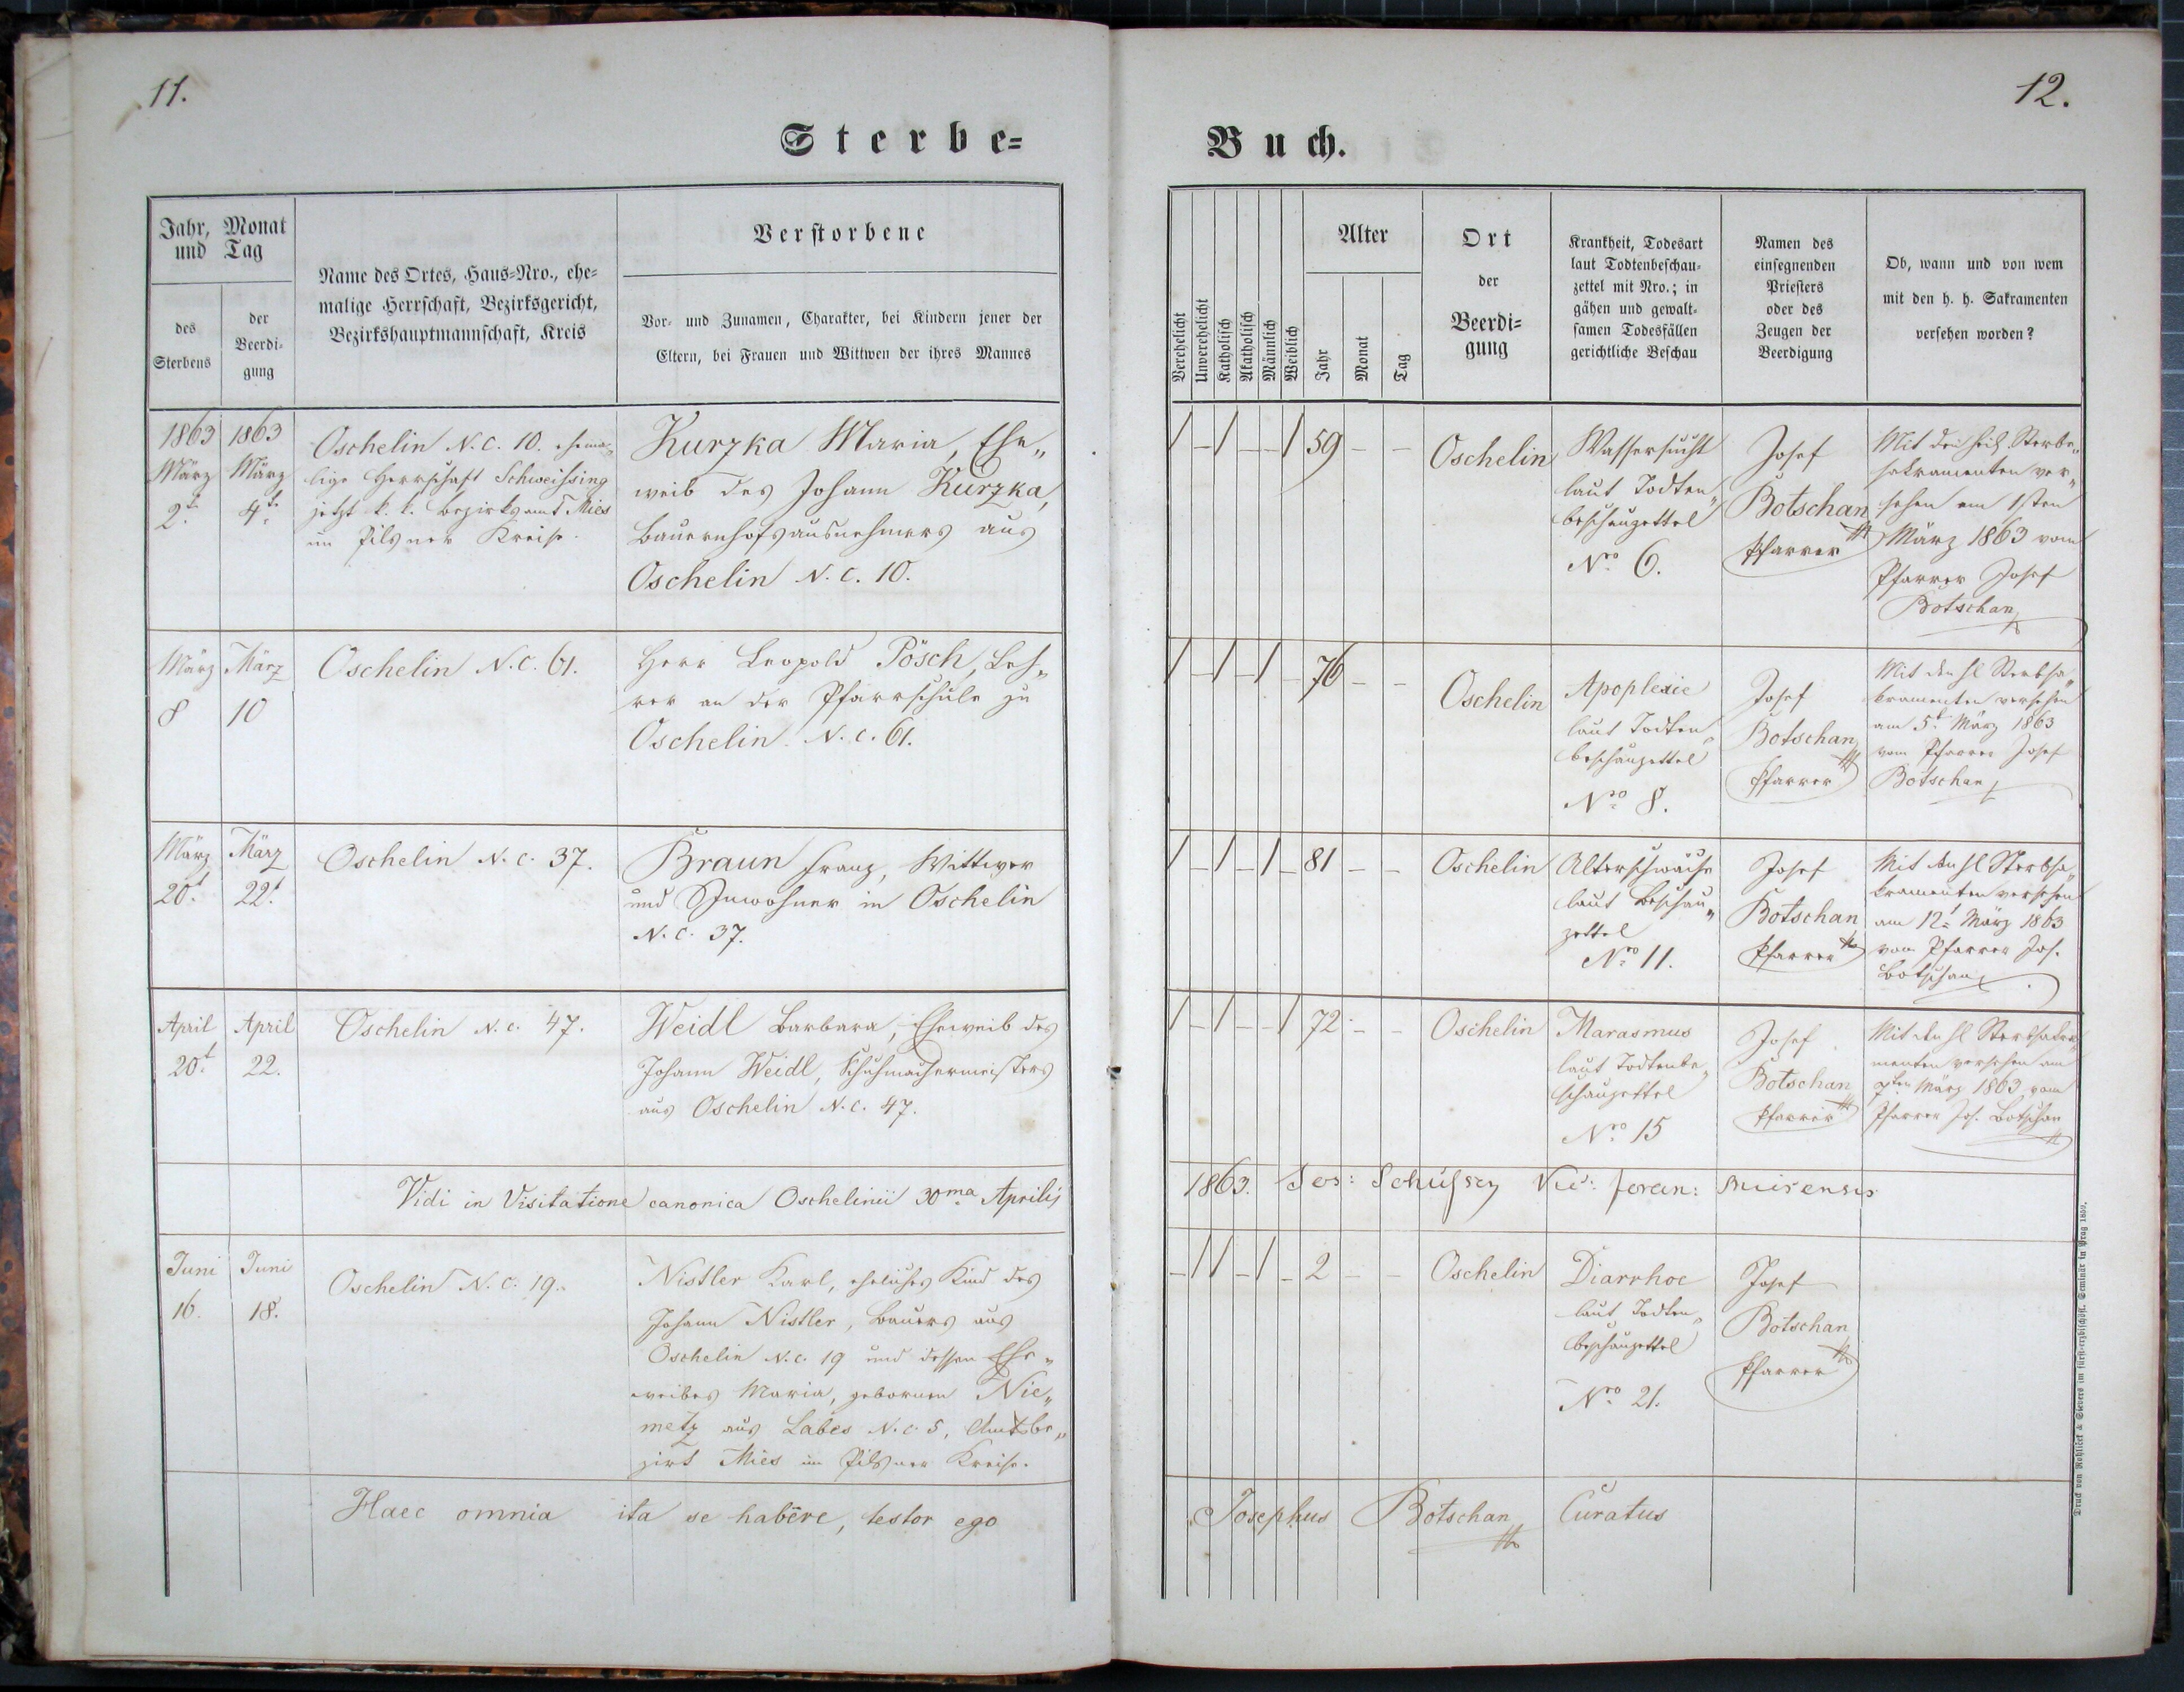 11.
Sterbe-
Jahr, Monat
und Tag
des
Sterbens
der
Beerdi-
gung
Name des Ortes, Haus-Nro., ehe-
malige Herrschaft, Bezirksgericht,
Bezirkshauptmannschaft, Kreis
Verstorbene
Vor- und Zunamen, Charakter, bei Kindern jener der
Eltern, bei Frauen und Wittwen der ihres Mannes
1863
März
2t.
1863
März
4t.
Oschelin N.C. 10. ehema-
lige Herrschaft Schweissing
jetzt k. k. Bezirksamt Mies
im Pilsner Kreise.
Kurzka Maria, Ehe„
weib des Johann Kurzka,
Bauernhofsausnehmers aus
Oschelin N.C. 10.
März
8
März
10
Oschelin N.C. 61.
Herr Leopold Pösch, Leh„
rer an der Pfarrschule zu
Oschelin N.C. 61.
März
20t.
März
22t.
Oschelin N.C. 37.
Braun Franz, Wittwer
und Inwohner in Oschelin
N.C. 37.
April
20t.
April
22.
Oschelin N.C. 47.
Weidl Barbara, Eheweib des
Johann Weidl, Schuhmachermeisters
aus Oschelin N.C. 47.
Vidi in Visitatione canonica Oschelinii 30ma Aprilis
Juni
16.
Juni
18.
Oschelin N.C. 19.
Nistler Karl, eheliches Kind des
Johann Nistler, Bauers aus
Oschelin N.C. 19 und dessen Ehe„
weibes Maria, gebornen Nie„
metz aus Labes N.C. 5, Amtsbe„
zirk Mies im Pilsner Kreise.
Haec omnia ita se habere, testor ego
12.
Buch.
Verehelicht
Unverehelicht
Katholisch
Akatholisch
Männlich
Weiblich
Alter
Jahr
Monat
Tag
Ort
der
Beerdi-
gung
Krankheit, Todesart
laut Todtenbeschau-
zettel mit Nro.; in
gähen und gewalt-
samen Todesfällen
gerichtliche Beschau
Namen des
einsegnenden
Priesters
oder des
Zeugen der
Beerdigung
Ob, wann und von wem
mit den h. h. Sakramenten
versehen worden?
/ - / - - / 59 - -
Oschelin
Wassersucht
laut Todten„
beschauzettel
Nro 6.
Josef
Botschan
Pfarrer
Mit den heil. Sterbe„
sakramenten ver„
sehen am 1sten
März 1863 vom
Pfarrer Josef
Botschan
/ - / - / - 76 - -
Oschelin
Apoplexie
laut Todten„
beschauzettel
Nro 8.
Josef
Botschan
Pfarrer
Mit den hl Sterbsa„
kramenten versehen
am 5t. März 1863
vom Pfarrer Josef
Botschan
/ - / - / - 81 - -
Oschelin
Altersschwäche
laut Beschau„
zettel
Nro 11.
Josef
Botschan
Pfarrer
Mit den hl Sterbsa„
kramenten versehen
am 12t. März 1863
vom Pfarrer Jos.
Botschan
/ - / - - / 72 - -
Oschelin
Marasmus
laut Todtenbe„
schauzettel
Nro 15
Josef
Botschan
Pfarrer
Mit den hl Sterbsakra„
menten versehen am
7ten März 1863 vom
Pfarrer Jos. Botschan
1863. Jos: Vic: foran: Misensis
- / / - / - 2 - -
Oschelin
Diarrhoe
laut Todten„
beschauzettel
Nro 21.
Josef
Botschan
Pfarrer
Josephus Botschan Curatus
Druck von Rohliček & Sievers im fürst-erzbischöfl. Seminär in Prag 1859.